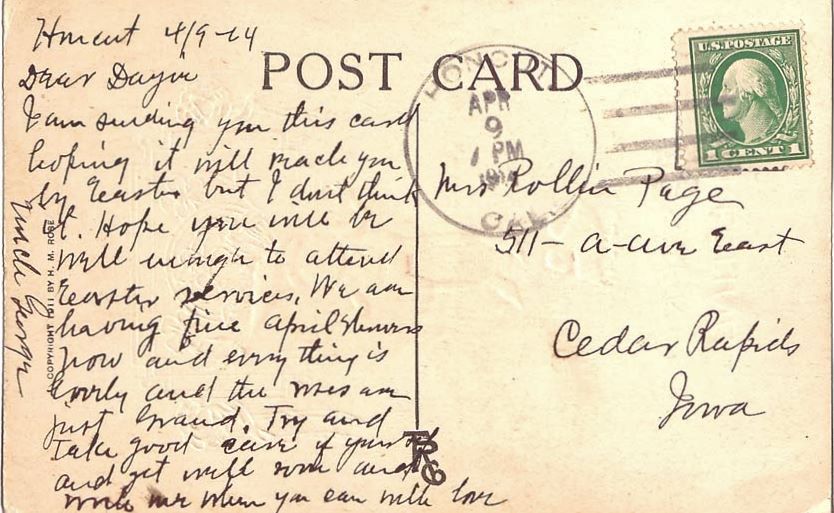 Honcut 4/9-14
Dear
I am sending you this card
hoping it will reach you
by Easter but I dont think
it. Hope you will be
well enough to attend
Easter services. We are
having fine April showers
now and everything is
lovely and the roses are
just Grand. Try and
take good care of yourself
and get well soon and
write me when you can with love
Uncle George
COPYRIGHT 1911 BY H. M. ROSE
POST CARD
HONCUT
APR
9
1 PM
1914
CAL.
U.S. POSTAGE
1 CENT 1
Mrs Rollin Page
511- A-Ave East
Cedar Rapids
Iowa